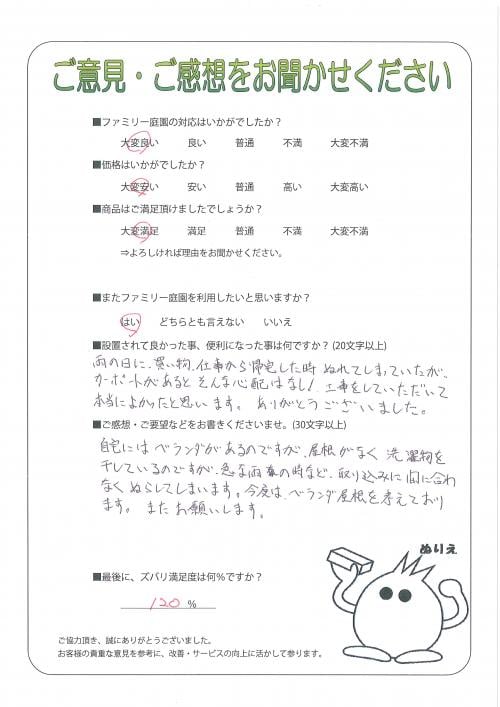 ご意見・ご感想をお聞かせください
■ファミリー庭園の対応はいかがでしたか？
大変良い 良い 普通 不満 大変不満
■価格はいかがでしたか？
大変安い 安い 普通 高い 大変高い
■商品はご満足頂けましたでしょうか？
大変満足 満足 普通 不満 大変不満
⇒よろしければ理由をお聞かせください。
■またファミリー庭園を利用したいと思いますか？
はい どちらとも言えない いいえ
■設置されて良かった事、便利になった事は何ですか？(20文字以上)
雨の日に、買い物、仕事から帰宅した時 ぬれてしまっていたが、
カーポートがあると そんな心配はなし！ 工事をしていただいて
本当によかったと思います。 ありがとうございました。
■ご感想・ご要望などをお書きくださいませ。(30文字以上)
自宅には ベランダがあるのですが、屋根がなく 洗濯物を
干しているのですが、急な雨の時など、取り込みに間に合わ
なく ぬらしてしまいます。今度は ベランダ屋根を考えており
ます。 またお願いします。
ぬりえ
■最後に、ズバリ満足度は何％ですか？
120 ％
ご協力頂き、誠にありがとうございました。
お客様の貴重な意見を参考に、改善・サービスの向上に活かして参ります。